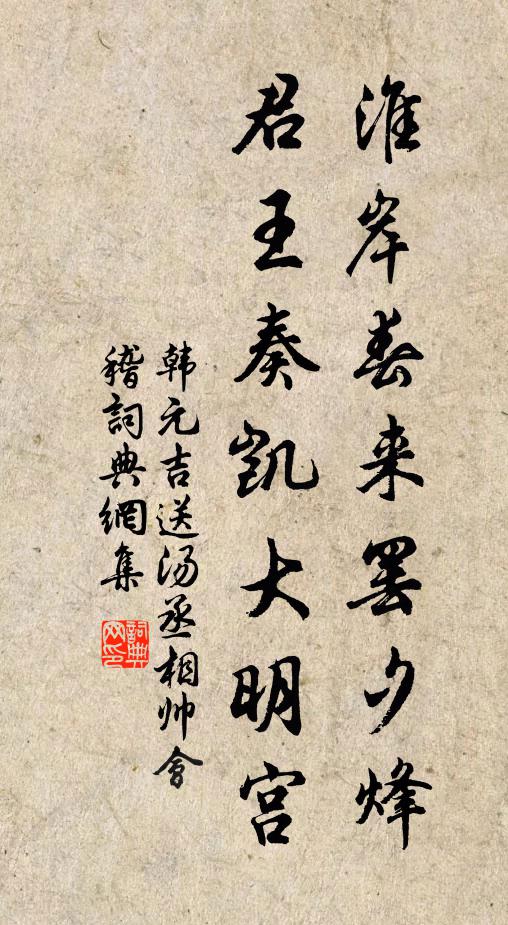 淮岸春来罢夕烽
君王奏凯大明宫
韩元吉送汤丞相帅会
稽词典網集
詞典網印